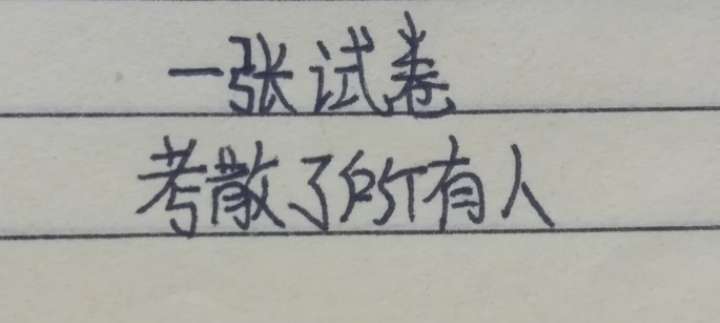 一张试卷
考散了所有人